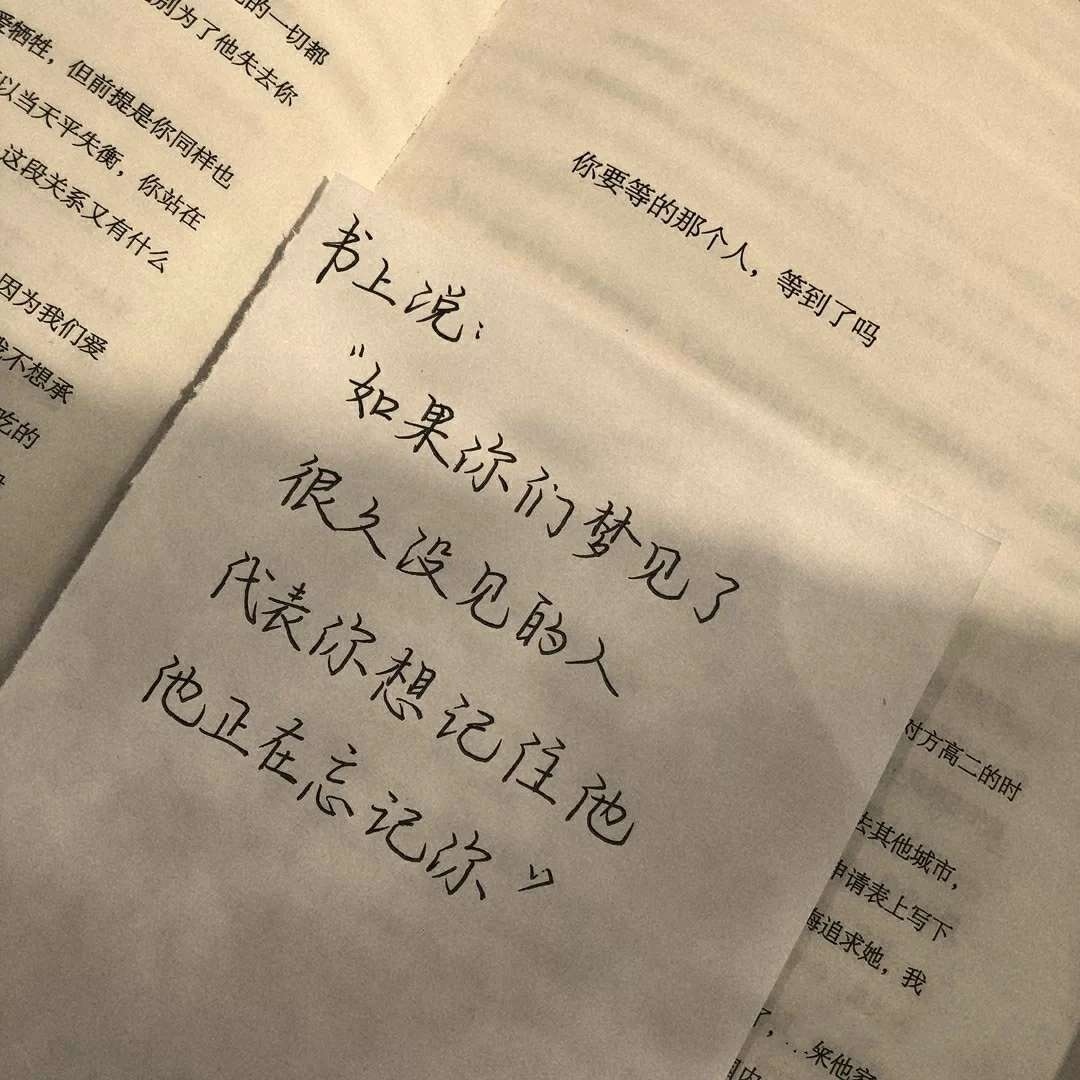 的一切都
别为了他失去你
爱牺牲，但前提是你同样也
以当天平失衡，你站在
这段关系又有什么
因为我们爱
不想承
吃的
你要等的那个人，等到了吗
书上说：
“如果你们梦见了
很久没见的人
代表你想记住他
他正在忘记你”
对方高二的时
去其他城市，
申请表上写下
海追求她，我
了，
来他家